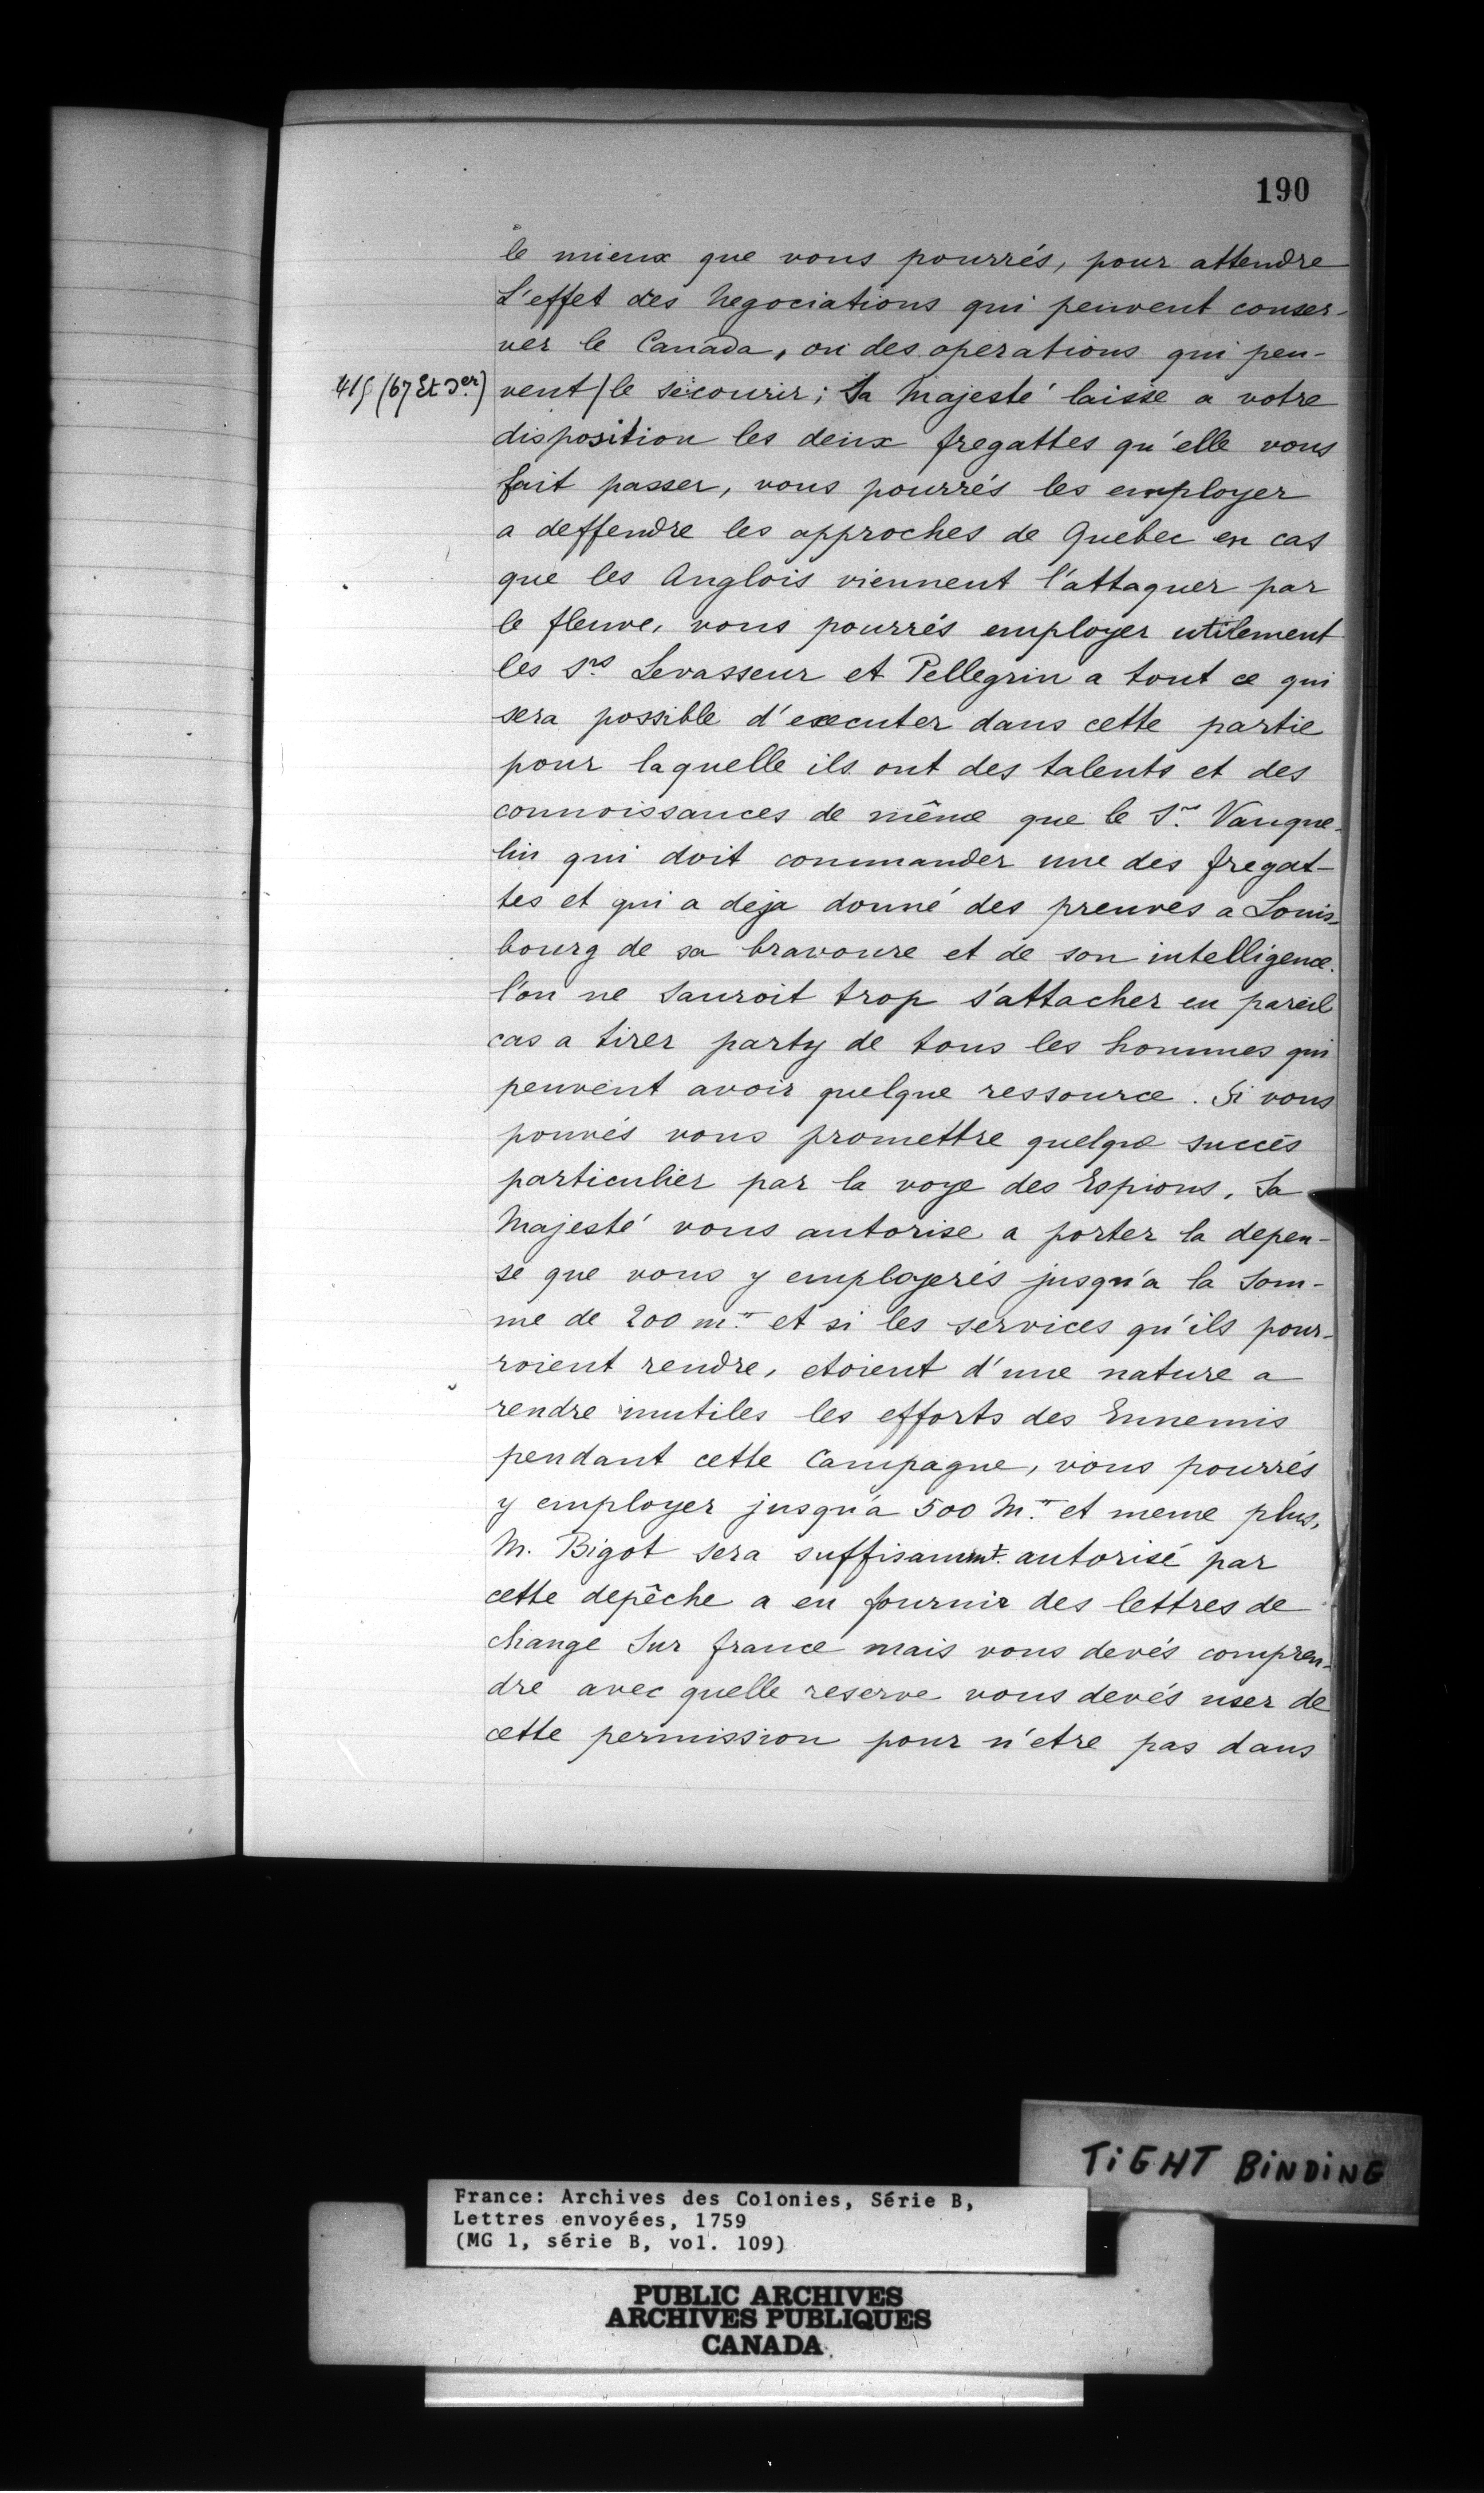 190
le mieux que vous pourrés, pour attendre
L'effet des Negociations qui peuvent conser-
ver le Canada, ou des operations qui peu-
(67 Et Der) vent/le secourir; Sa Majesté laisse a votre
disposition les deux fregattes qu'elle vous
fait passer, vous pourrés les employer
a deffendre les approches de Quebec en cas
que les Anglois viennent l'attaquer par
le fleuve, vous pourrés employer utilement
les Srs Levasseur et Pellegrin a tout ce qui
sera possible d'executer dans cette partie
pour laquelle ils ont des talents et des
connoissances de même que le Sr. Vauque-
lin qui doit commander une des fregat-
tes et qui a deja donné des preuves a Louis-
bourg de sa bravoure et de son intelligence.
l'on ne Sauroit trop s'attacher en pareil
cas a tirer party de tous les hommes qui
peuvent avoir quelque ressource. Si vous
pouvés vous promettre quelque succès
particulier par la voye des Espions, Sa
Majesté vous autorise a porter la depen-
se que vous y employerés jusqu'a la Som-
me de 200 m.tt et si les services qu'ils pour-
roient rendre, etoient d'une nature a
rendre inutiles les efforts des Ennemis
pendant cette Campagne, vous pourrés
y employer jusqu'a 500 M.tt et meme plus,
M. Bigot sera suffisammt. autorisé par
cette depêche a en fournir des lettres de
change Sur france mais vous devés compren-
dre avec quelle reserve vous devés user de
cette permission pour n'etre pas dans
TiGHT BiNDiNG
France: Archives des Colonies, Série B,
Lettres envoyées, 1759
(MG 1, série B, vol. 109)
PUBLIC ARCHIVES
ARCHIVES PUBLIQUES
CANADA